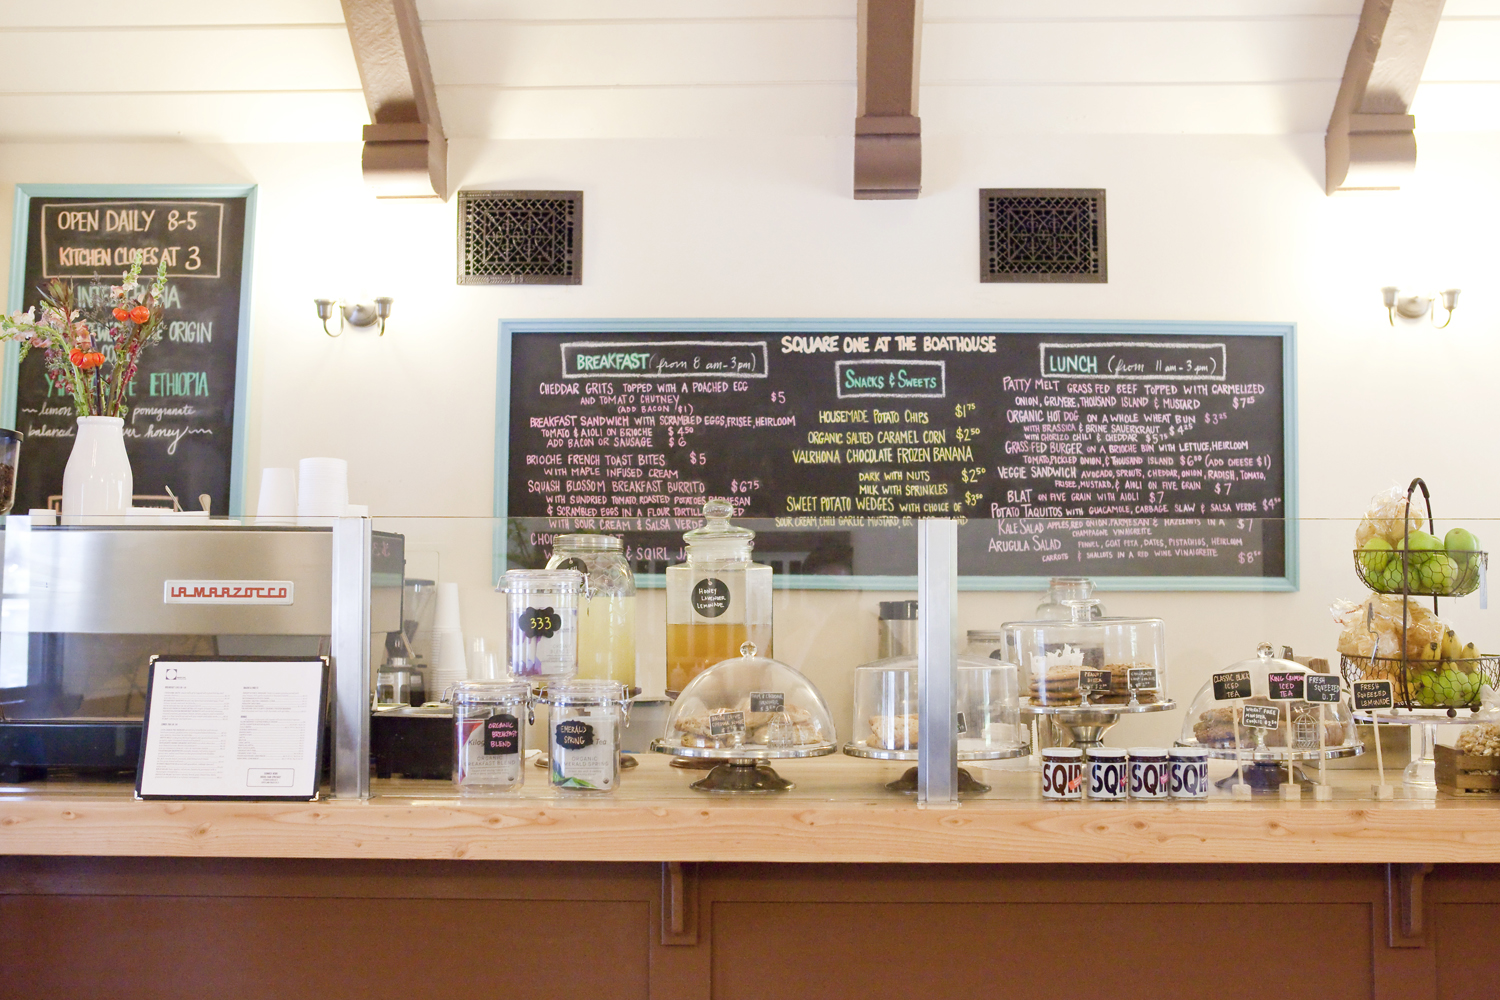 OPEN DAILY 8-5
KITCHEN CLOSES AT 3
ORIGIN
ETHIOPIA
lemon pomegranate
balanced honey
SQUARE ONE AT THE BOATHOUSE
BREAKFAST (from 8 am-3pm)
CHEDDAR GRITS TOPPED WITH A POACHED EGG
AND TOMATO CHUTNEY $5
(ADD BACON $1)
BREAKFAST SANDWICH WITH SCRAMBLED EGGS, FRISEE, HEIRLOOM
TOMATO & AIOLI ON BRIOCHE $4.50
ADD BACON OR SAUSAGE $6
BRIOCHE FRENCH TOAST BITES $5
WITH MAPLE INFUSED CREAM
SQUASH BLOSSOM BREAKFAST BURRITO $6.75
WITH SUNDRIED TOMATO, ROASTED POTATOES, PARMESAN
& SCRAMBLED EGGS IN A FLOUR TORTILLA
WITH SOUR CREAM & SALSA VERDE
& SQIRL
SNACKS & SWEETS
HOUSEMADE POTATO CHIPS $1.75
ORGANIC SALTED CARAMEL CORN $2.50
VALRHONA CHOCOLATE FROZEN BANANA
DARK WITH NUTS $2.50
MILK WITH SPRINKLES
SWEET POTATO WEDGES WITH CHOICE OF
SOUR CREAM, CHILI GARLIC MUSTARD, OR
LUNCH (from 11am-3pm)
PATTY MELT GRASS FED BEEF TOPPED WITH CARMELIZED
ONION, GRUYERE, THOUSAND ISLAND & MUSTARD
ORGANIC HOT DOG ON A WHOLE WHEAT BUN $3.25
WITH BRASSICA & BRINE SAUERKRAUT
WITH CHORIZO CHILI & CHEDDAR $5.75
GRASS FED BURGER ON A BRIOCHE BUN WITH LETTUCE, HEIRLOOM
TOMATO, PICKLED ONION, & THOUSAND ISLAND $6.50 (ADD CHEESE $1)
VEGGIE SANDWICH AVOCADO, SPROUTS, CHEDDAR, ONION, RADISH, TOMATO,
FRISEE, MUSTARD, & AIOLI ON FIVE GRAIN $7
BLAT ON FIVE GRAIN WITH AIOLI $7
POTATO TAQUITOS WITH GUACAMOLE, CABBAGE SLAW & SALSA VERDE
KALE SALAD APPLES, RED ONION, PARMESAN & HAZELNUTS IN A $7
CHAMPAGNE VINAIGRETTE
ARUGULA SALAD FENNEL, GOAT FETA, DATES, PISTACHIOS, HEIRLOOM
CARROTS & SHALLOTS IN A RED WINE VINAIGRETTE
LA MARZOCCO
333
HONEY
LAVENDER
LEMONADE
ORGANIC
BREAKFAST
BLEND
EMERALD
SPRING
PEANUT
CLASSIC BLACK
ICED
TEA
ICED
TEA
FRESH
SQUEEZED
O.J.
FRESH
SQUEEZED
LEMONADE
SQIRL
SQI
SQI
SQI